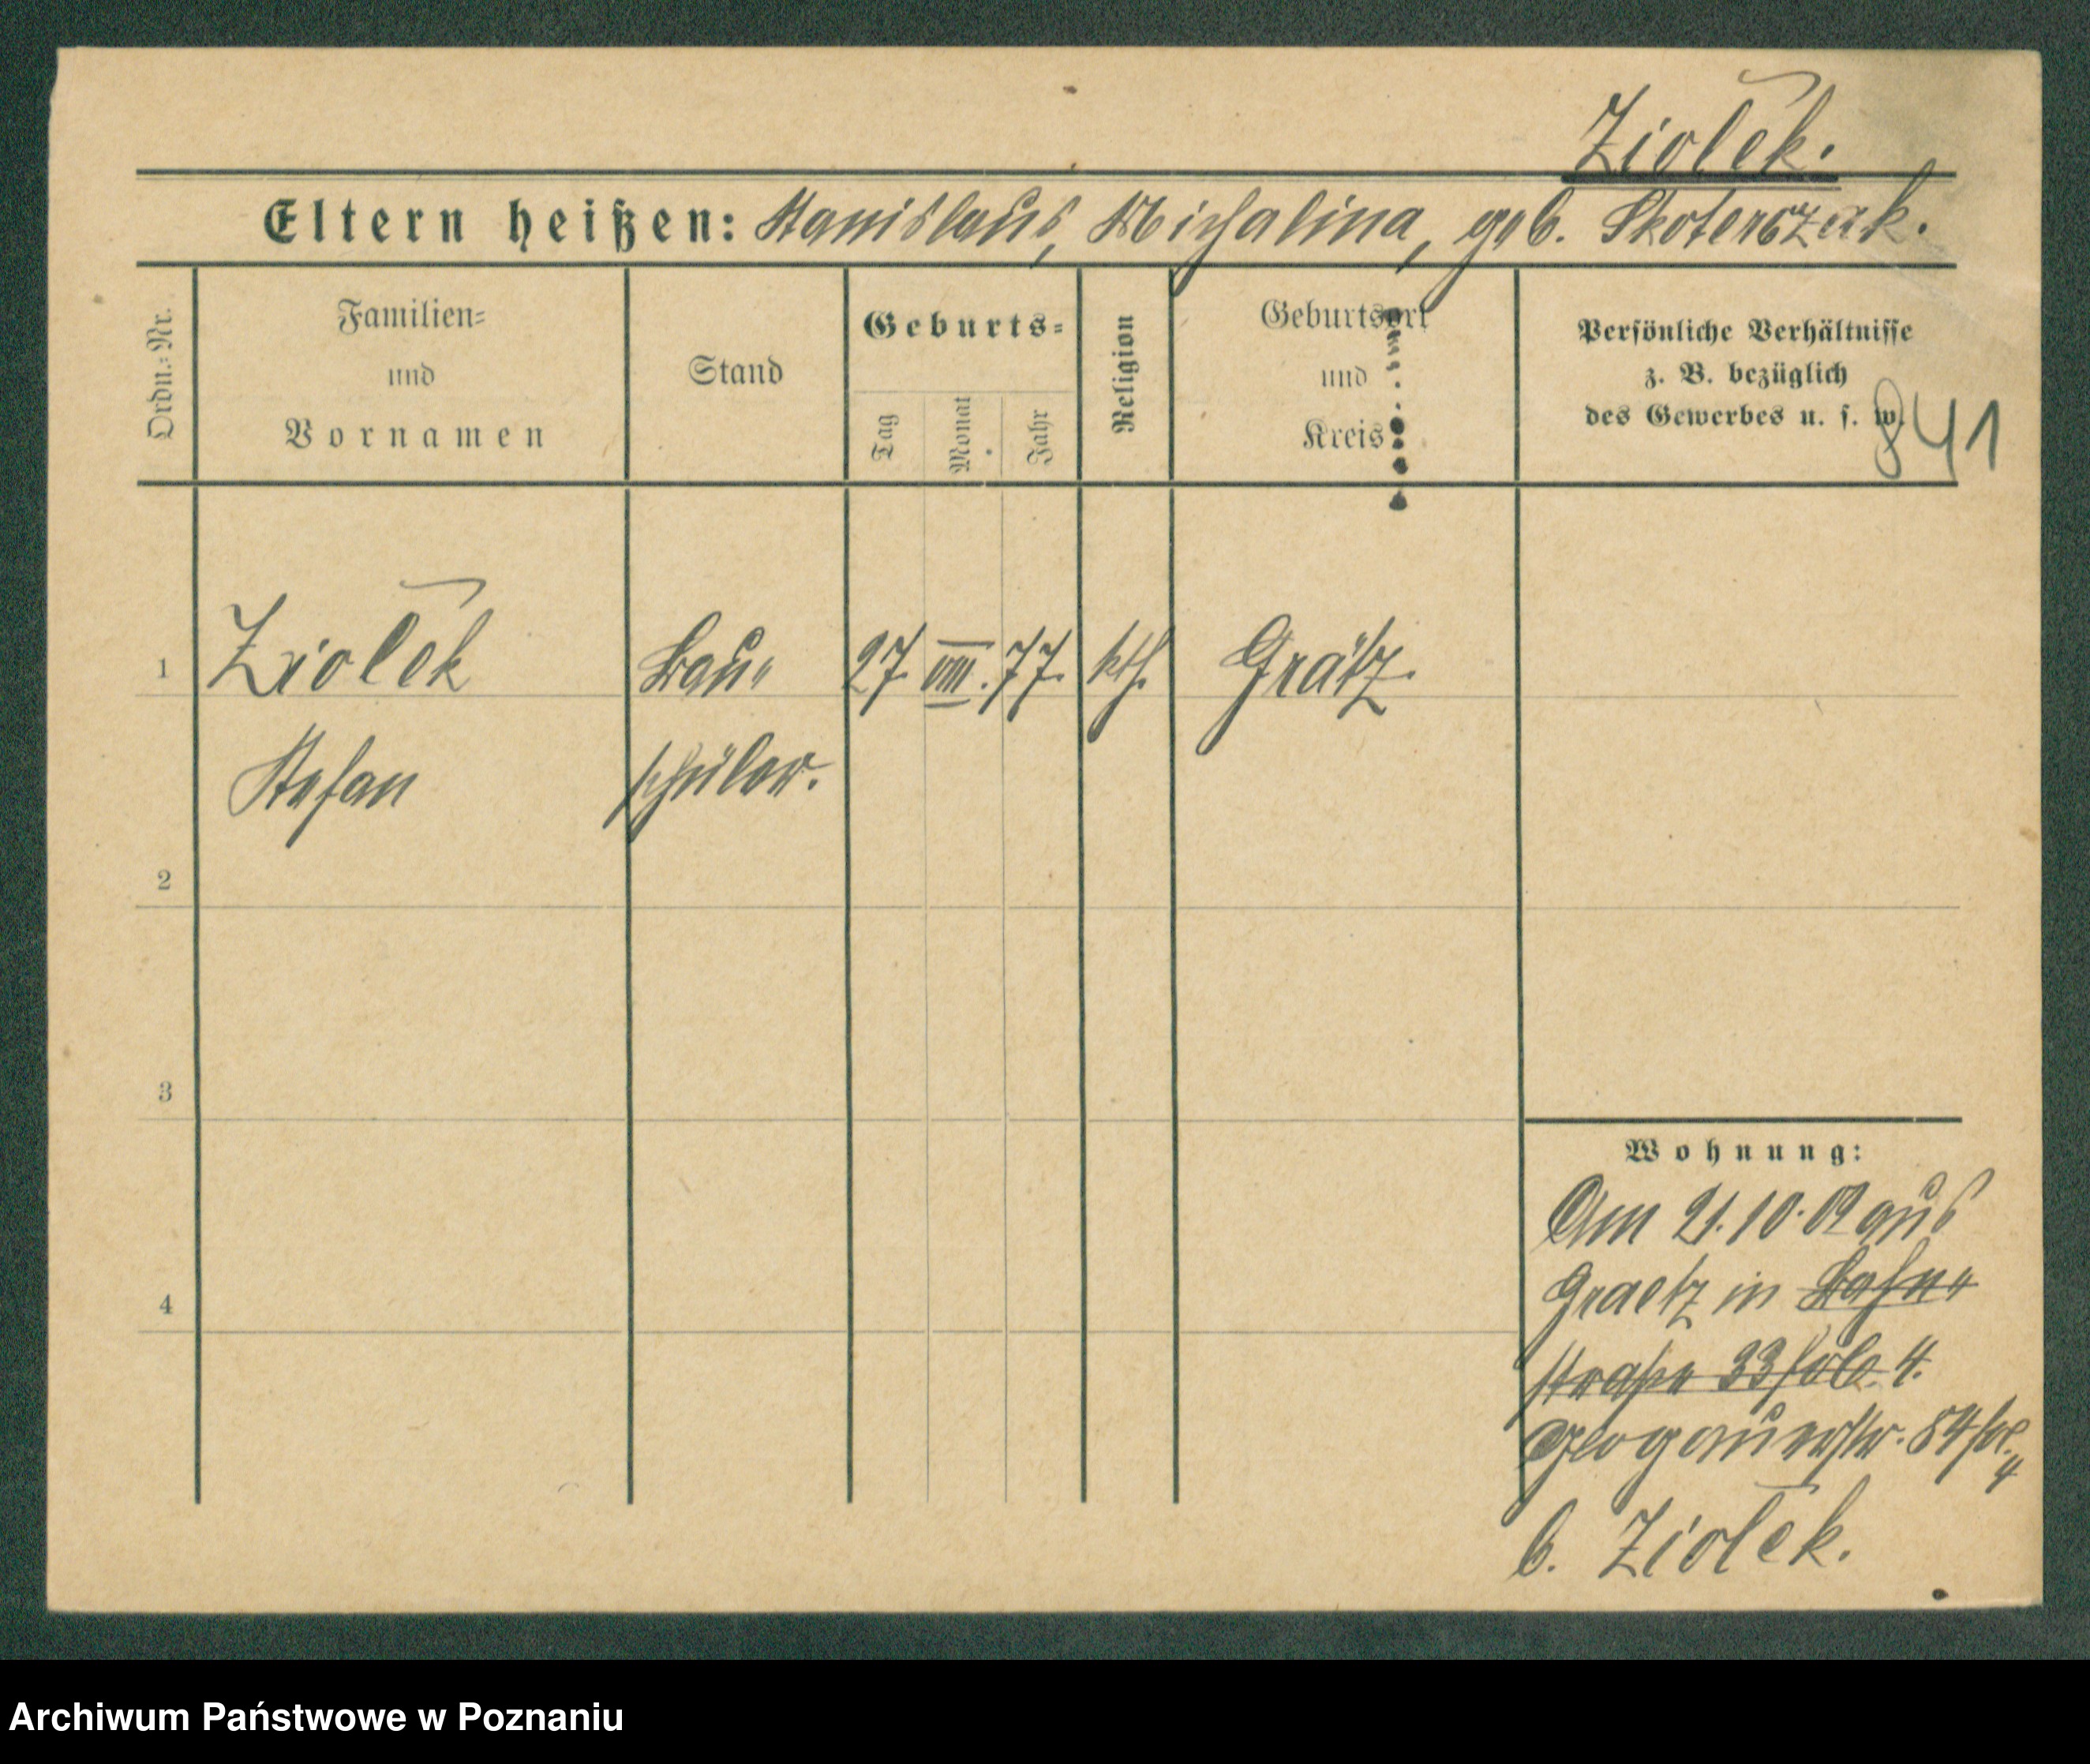 Ziolek.
Eltern heißen: Stanislaus, Michalina, geb. Skoterczak.
Ordn.-Nr.
Familien-
und
Vornamen
Stand
Geburts-
Tag
Monat
Jahr
Religion
Geburtsort
und
Kreis
Persönliche Verhältnisse
z. B. bezüglich
des Gewerbes u. s. w.
841
1 Ziolek Bau- 27. VIII. 77. kth. Grätz.
Stefan schüler.
2
3
4
Wohnung:
Am 21.10.02 aus
Graetz in Bahn-
straße 33 4.
Glogauerstr. 84 4
b. Ziolek.
Archiwum Państwowe w Poznaniu